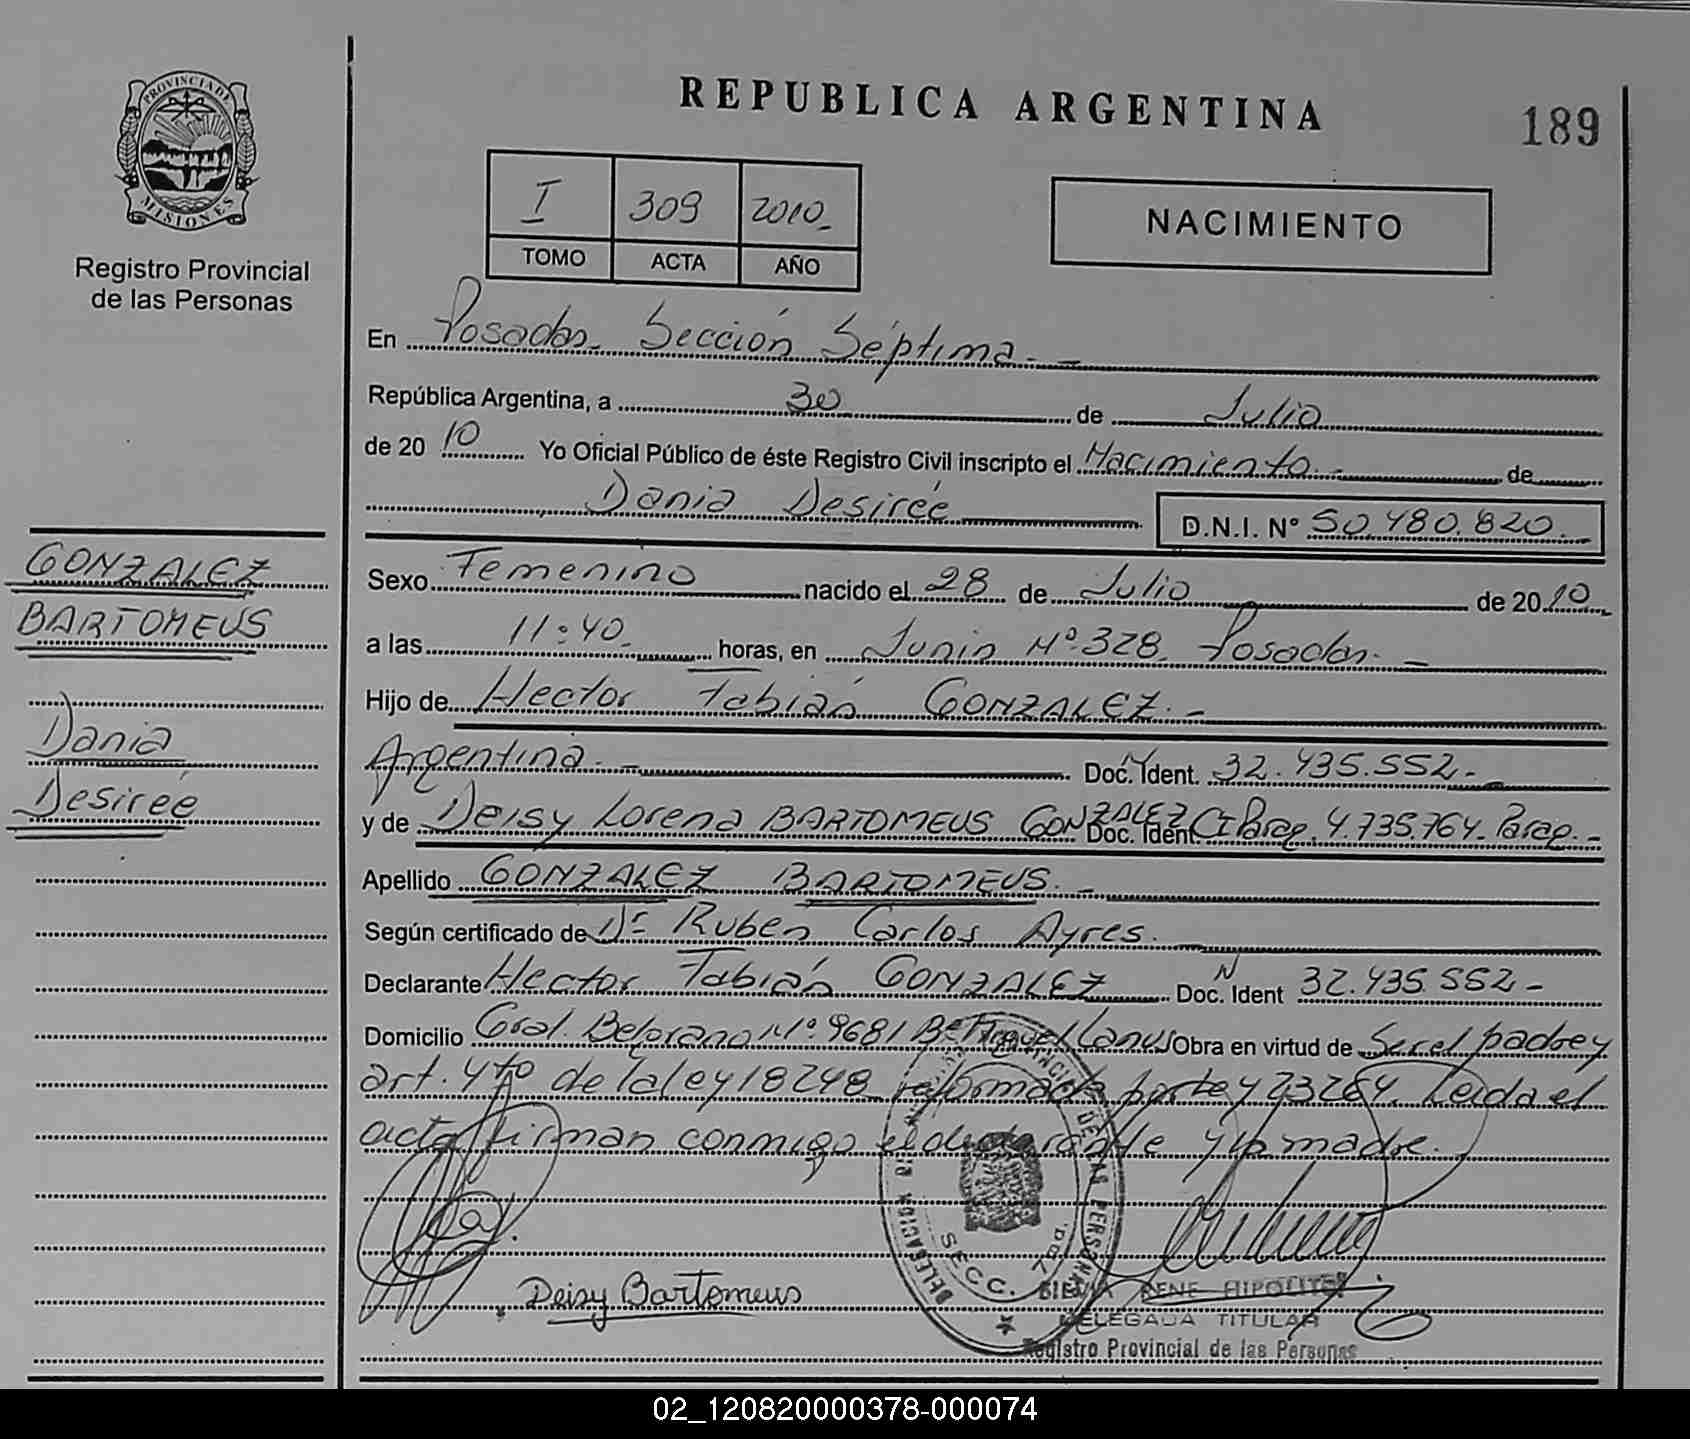 PROVINCIA DE
MISIONES
Registro Provincial
de las Personas
REPUBLICA ARGENTINA
189
I 309 2010
TOMO ACTA AÑO
NACIMIENTO
En Posadas Sección Séptima
República Argentina, a 30 de Julio
de 2010 Yo Oficial Público de éste Registro Civil inscripto el Nacimiento de
Dania Desirée D.N.I. Nº 50.480.820
GONZALEZ
BARTOMEUS
Dania
Desirée
Sexo Femenino nacido el 28 de Julio de 2010
a las 11:40 horas, en Junin Nº 328 Posadas
Hijo de Hector Fabián GONZALEZ
Argentina Doc. Ident. 32.435.552
y de Deisy Lorena BARTOMEUS GONZALEZ Doc. Ident. CI Parag. 4.735.764 Parag.
Apellido GONZALEZ BARTOMEUS
Según certificado de Dr Ruben Carlos Ayres
Declarante Hector Fabián GONZALEZ Doc. Ident 32.435.552
Domicilio Gral. Belgrano Nº 9681 Bº Miguel Lanus Obra en virtud de Ser el padre y
art. 4to de la ley 18248 reformada por ley 23264. Leida el
acta firman conmigo el declarante y la madre.
Deisy Bartomeus
DE LAS PERSONAS
DELEGACION
SECC.
RENE HIPOLITE
DELEGADA TITULAR
Registro Provincial de las Personas
02_120820000378-000074